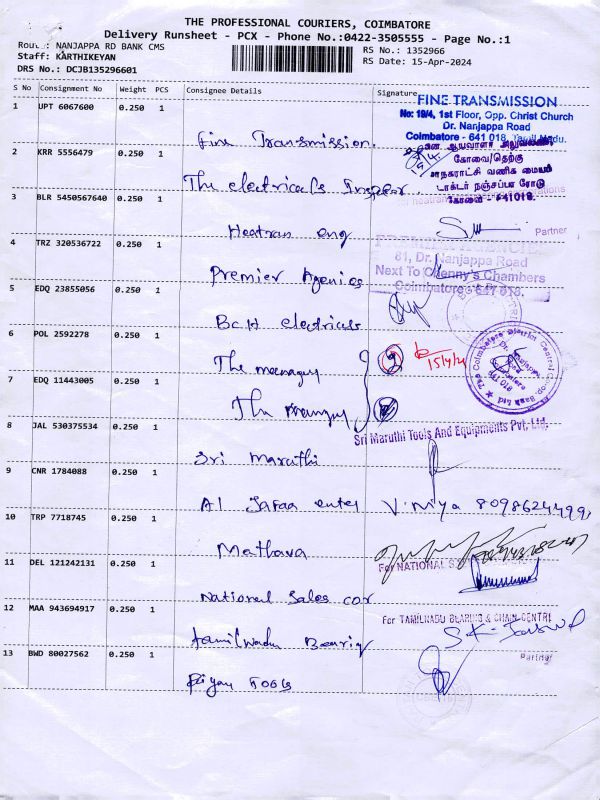 THE PROFESSIONAL COURIERS, COIMBATORE
Delivery Runsheet - PCX - Phone No.:0422-3505555 - Page No.:1
Route: NANJAPPA RD BANK CMS
RS No.: 1352966
Staff: KARTHIKEYAN
RS Date: 15-Apr-2024
DRS No.: DCJB135296601
S No Consignment No Weight PCS Consignee Details Signature
1 UPT 6067600 0.250 1
Fine Transmission
FINE TRANSMISSION
No: 19/4, 1st Floor, Opp. Christ Church
Dr. Nanjappa Road
Coimbatore - 641 018, Tamil Nadu.
2 KRR 5556479 0.250 1
The electricals
கோவை/தெற்கு
மாநகராட்சி வணிக மையம்
டாக்டர் நஞ்சப்பா ரோடு
கோவை - 641018.
3 BLR 5450567640 0.250 1
Heatran eng
Partner
4 TRZ 320536722 0.250 1
Premier Agenies
81, Dr. Nanjappa Road
Next To Chenny's Chambers
Coimbatore - 641 018.
5 EDQ 23855056 0.250 1
BCH electricals
6 POL 2592278 0.250 1
The
15/4/24
The Coimbatore District Central Co-op. Bank Ltd
7 EDQ 11443005 0.250 1
The
8 JAL 530375534 0.250 1
Sri Maruthi
Sri Maruthi Tools And Equipments Pvt. Ltd.
9 CNR 1784088 0.250 1
Al Jafaa enter Viniya 8098624499
10 TRP 7718745 0.250 1
Mathava
11 DEL 121242131 0.250 1
National Sales cor
For NATIONAL
12 MAA 943694917 0.250 1
tamilnadu Bearig
For TAMILNADU BEARING & CHAIN CENTRE
Partner
13 BWD 80027562 0.250 1
Riyan Tools